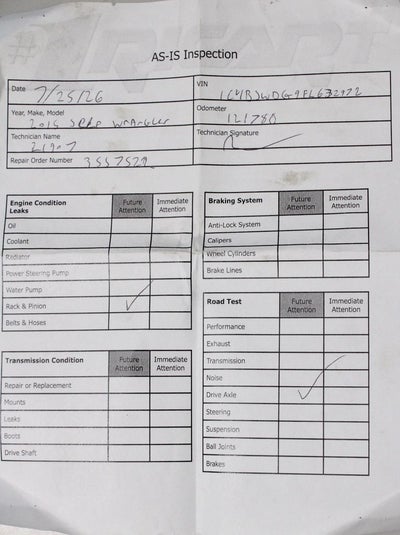 AS-IS Inspection
Date 7/25/26
VIN
Year, Make, Model
2015 Jeep Wrangler
Odometer
121780
Technician Name
21707
Technician Signature
Repair Order Number 3557529
Engine Condition Leaks Future Attention Immediate Attention
Oil
Coolant
Radiator
Power Steering Pump
Water Pump
Rack & Pinion
Belts & Hoses
Transmission Condition Future Attention Immediate Attention
Repair or Replacement
Mounts
Leaks
Boots
Drive Shaft
Braking System Future Attention Immediate Attention
Anti-Lock System
Calipers
Wheel Cylinders
Brake Lines
Road Test Future Attention Immediate Attention
Performance
Exhaust
Transmission
Noise
Drive Axle
Steering
Suspension
Ball Joints
Brakes